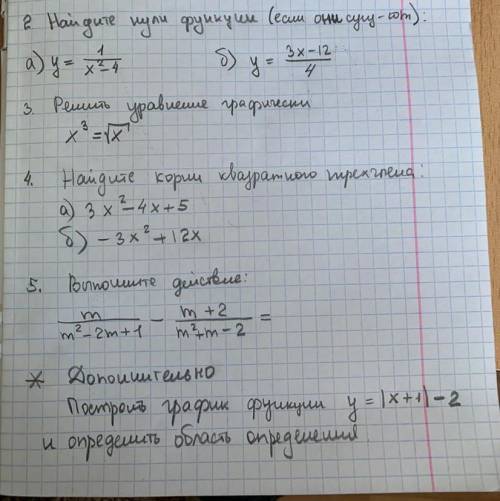 2. Найдите нули функции (если они сущ-ют):
а) y = 1/(x²-4)   б) y = (3x-12)/4
3. Решить уравнение графически
x³ = √x
4. Найдите корни квадратного трехчлена:
а) 3x²-4x+5
б) -3x²+12x
5. Выполните действие:
m/(m²-2m+1) - (m+2)/(m²+m-2) =
* Дополнительно
Построить график функции y = |x+1|-2
и определить область определения